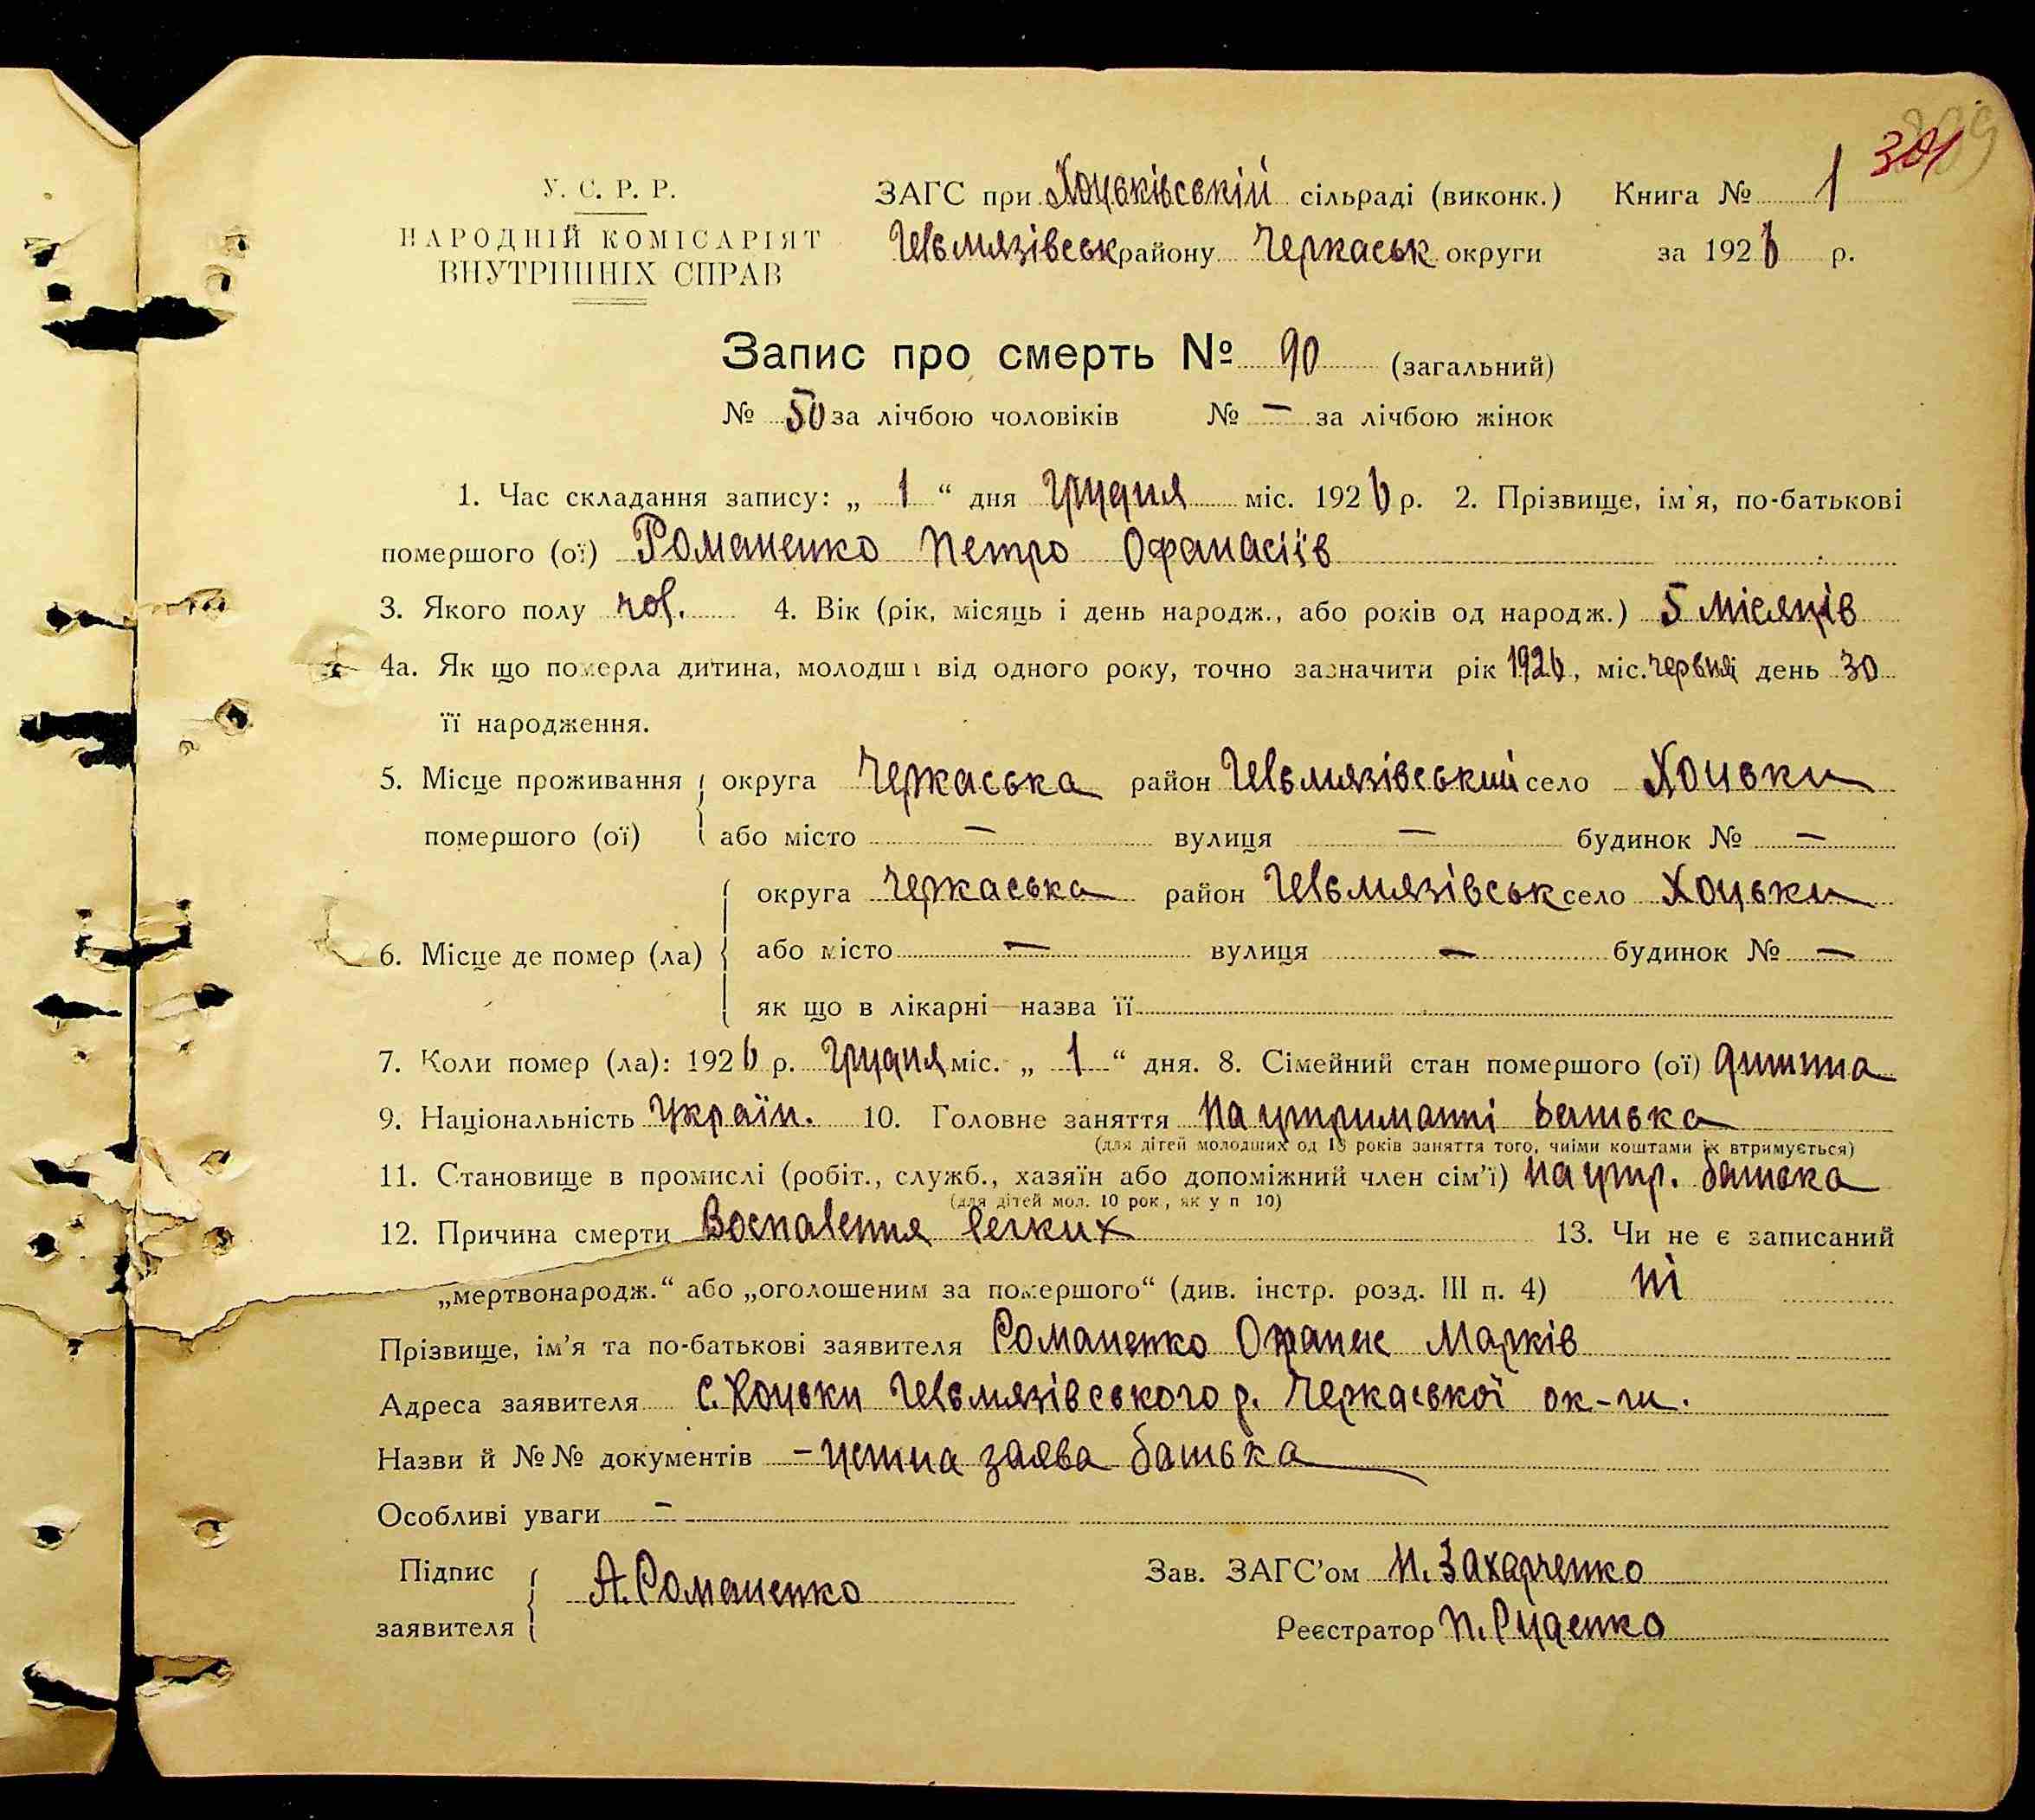 301
У. С. Р. Р.
НАРОДНІЙ КОМІСАРІЯТ
ВНУТРІШНІХ СПРАВ
ЗАГС при Хоцьківській сільраді (виконк.) Книга № 1
Гельмязівськ району Черкаськ округи за 1926 р.
Запис про смерть № 90 (загальний)
№ 50 за лічбою чоловіків № — за лічбою жінок
1. Час складання запису: „ 1 “ дня грудня міс. 1926 р. 2. Прізвище, ім'я, по-батькові
помершого (ої) Романенко Петро Офанасіїв
3. Якого полу чол. 4. Вік (рік, місяць і день народж., або років од народж.) 5 місяців
4а. Як що померла дитина, молодша від одного року, точно зазначити рік 1926, міс. червня день 30
її народження.
5. Місце проживання округа Черкаська район Гельмязівський село Хоцьки
помершого (ої) або місто — вулиця — будинок № —
округа Черкаська район Гельмязівськ село Хоцьки
6. Місце де помер (ла) або місто — вулиця — будинок № —
як що в лікарні—назва її
7. Коли помер (ла): 1926 р. Грудня міс. „ 1 “ дня. 8. Сімейний стан помершого (ої) дитина
9. Національність Україн. 10. Головне заняття на утриманні батька
(для дітей молодших од 18 років заняття того, чиїми коштами їх втримується)
11. Становище в промислі (робіт., служб., хазяїн або допоміжний член сім'ї) на утр. батька
(для дітей мол. 10 рок., як у п 10)
12. Причина смерти Воспалення легких 13. Чи не є записаний
„мертвонародж.“ або „оголошеним за помершого“ (див. інстр. розд. III п. 4) ні
Прізвище, ім'я та по-батькові заявителя Романенко Опанас Марків
Адреса заявителя с. Хоцьки Гельмязівського р. Черкаської ок-ги.
Назви й №№ документів — устна заява батька
Особливі уваги —
Підпис
заявителя А. Романенко
Зав. ЗАГС'ом И. Захарченко
Реєстратор П. Руденко